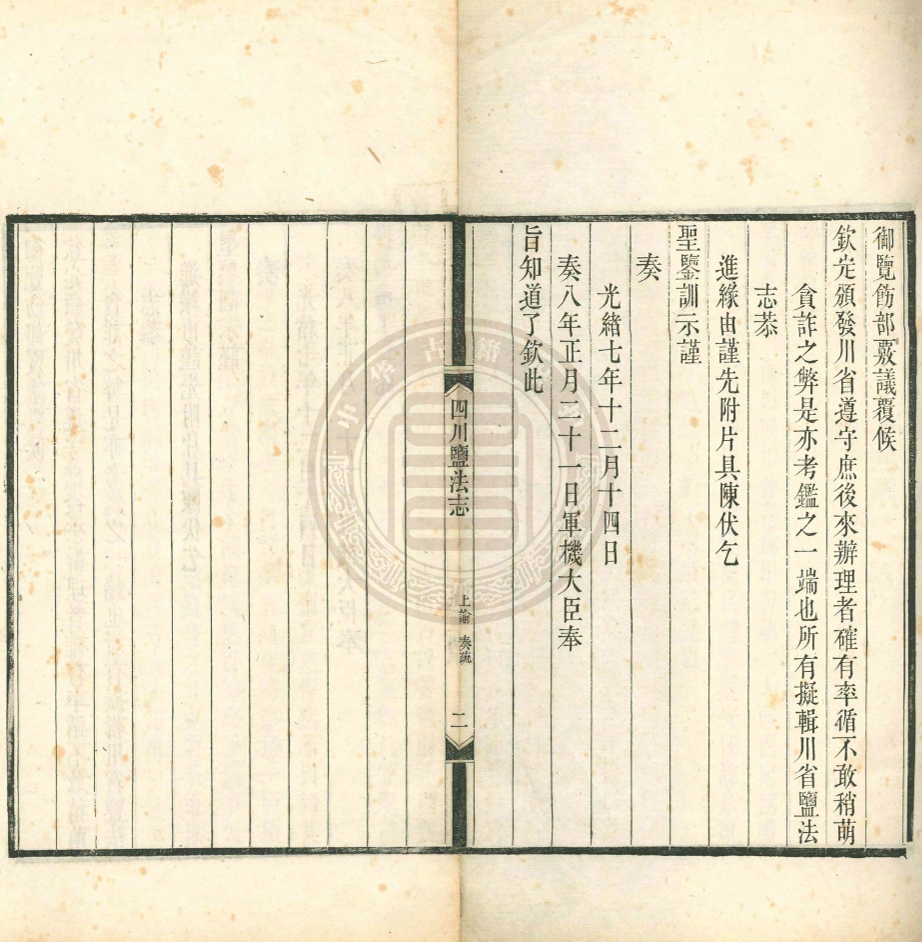 御覽飭部覈議覆候
欽定頒發川省遵守庶後來辦理者確有率循不敢稍萌
貪詐之弊是亦考鑑之一端也所有擬輯川省鹽法
志恭
進緣由謹先附片具陳伏乞
聖鑒訓示謹
奏
光緒七年十二月十四日
奏八年正月二十一日軍機大臣奉
旨知道了欽此
四川鹽法志
上諭 奏疏
二